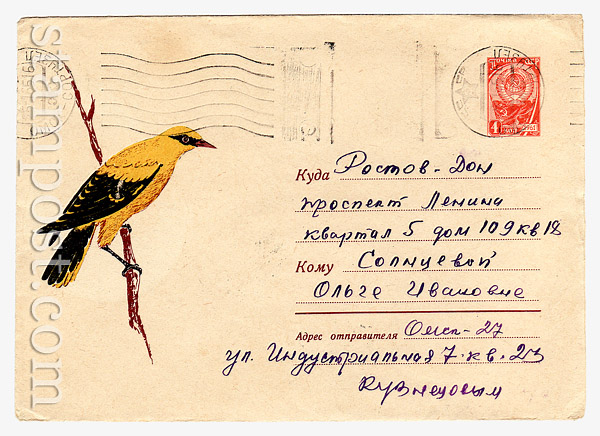 ПОЧТА СССР
4
Куда Ростов-Дон
проспект Ленина
квартал 5 дом 109 кв 18
Кому Солнцевой
Ольге Ивановне
Адрес отправителя Омск-27
ул. Индустриальная 7-кв. 23
Кузнецовым
stampost.com